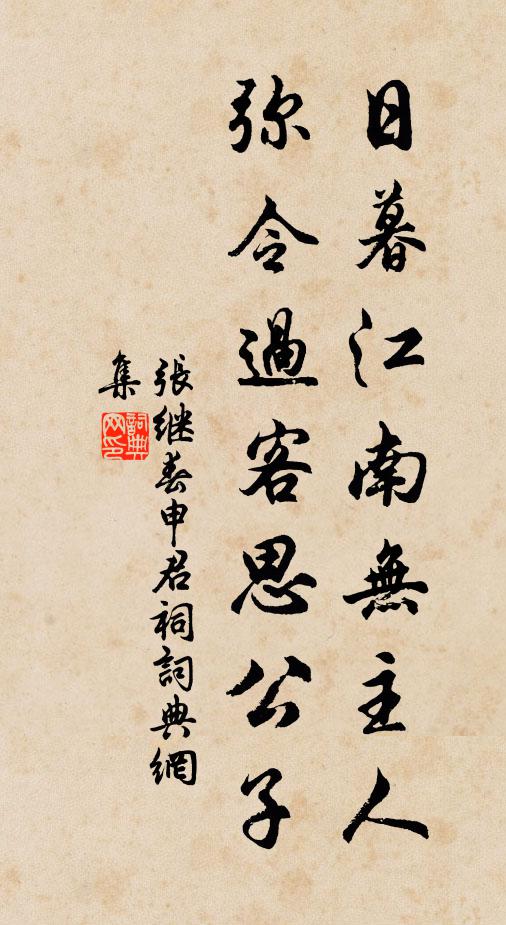 日暮江南無主人
弥令過客思公子
張継春申君祠詞典網
集
詞典
网印